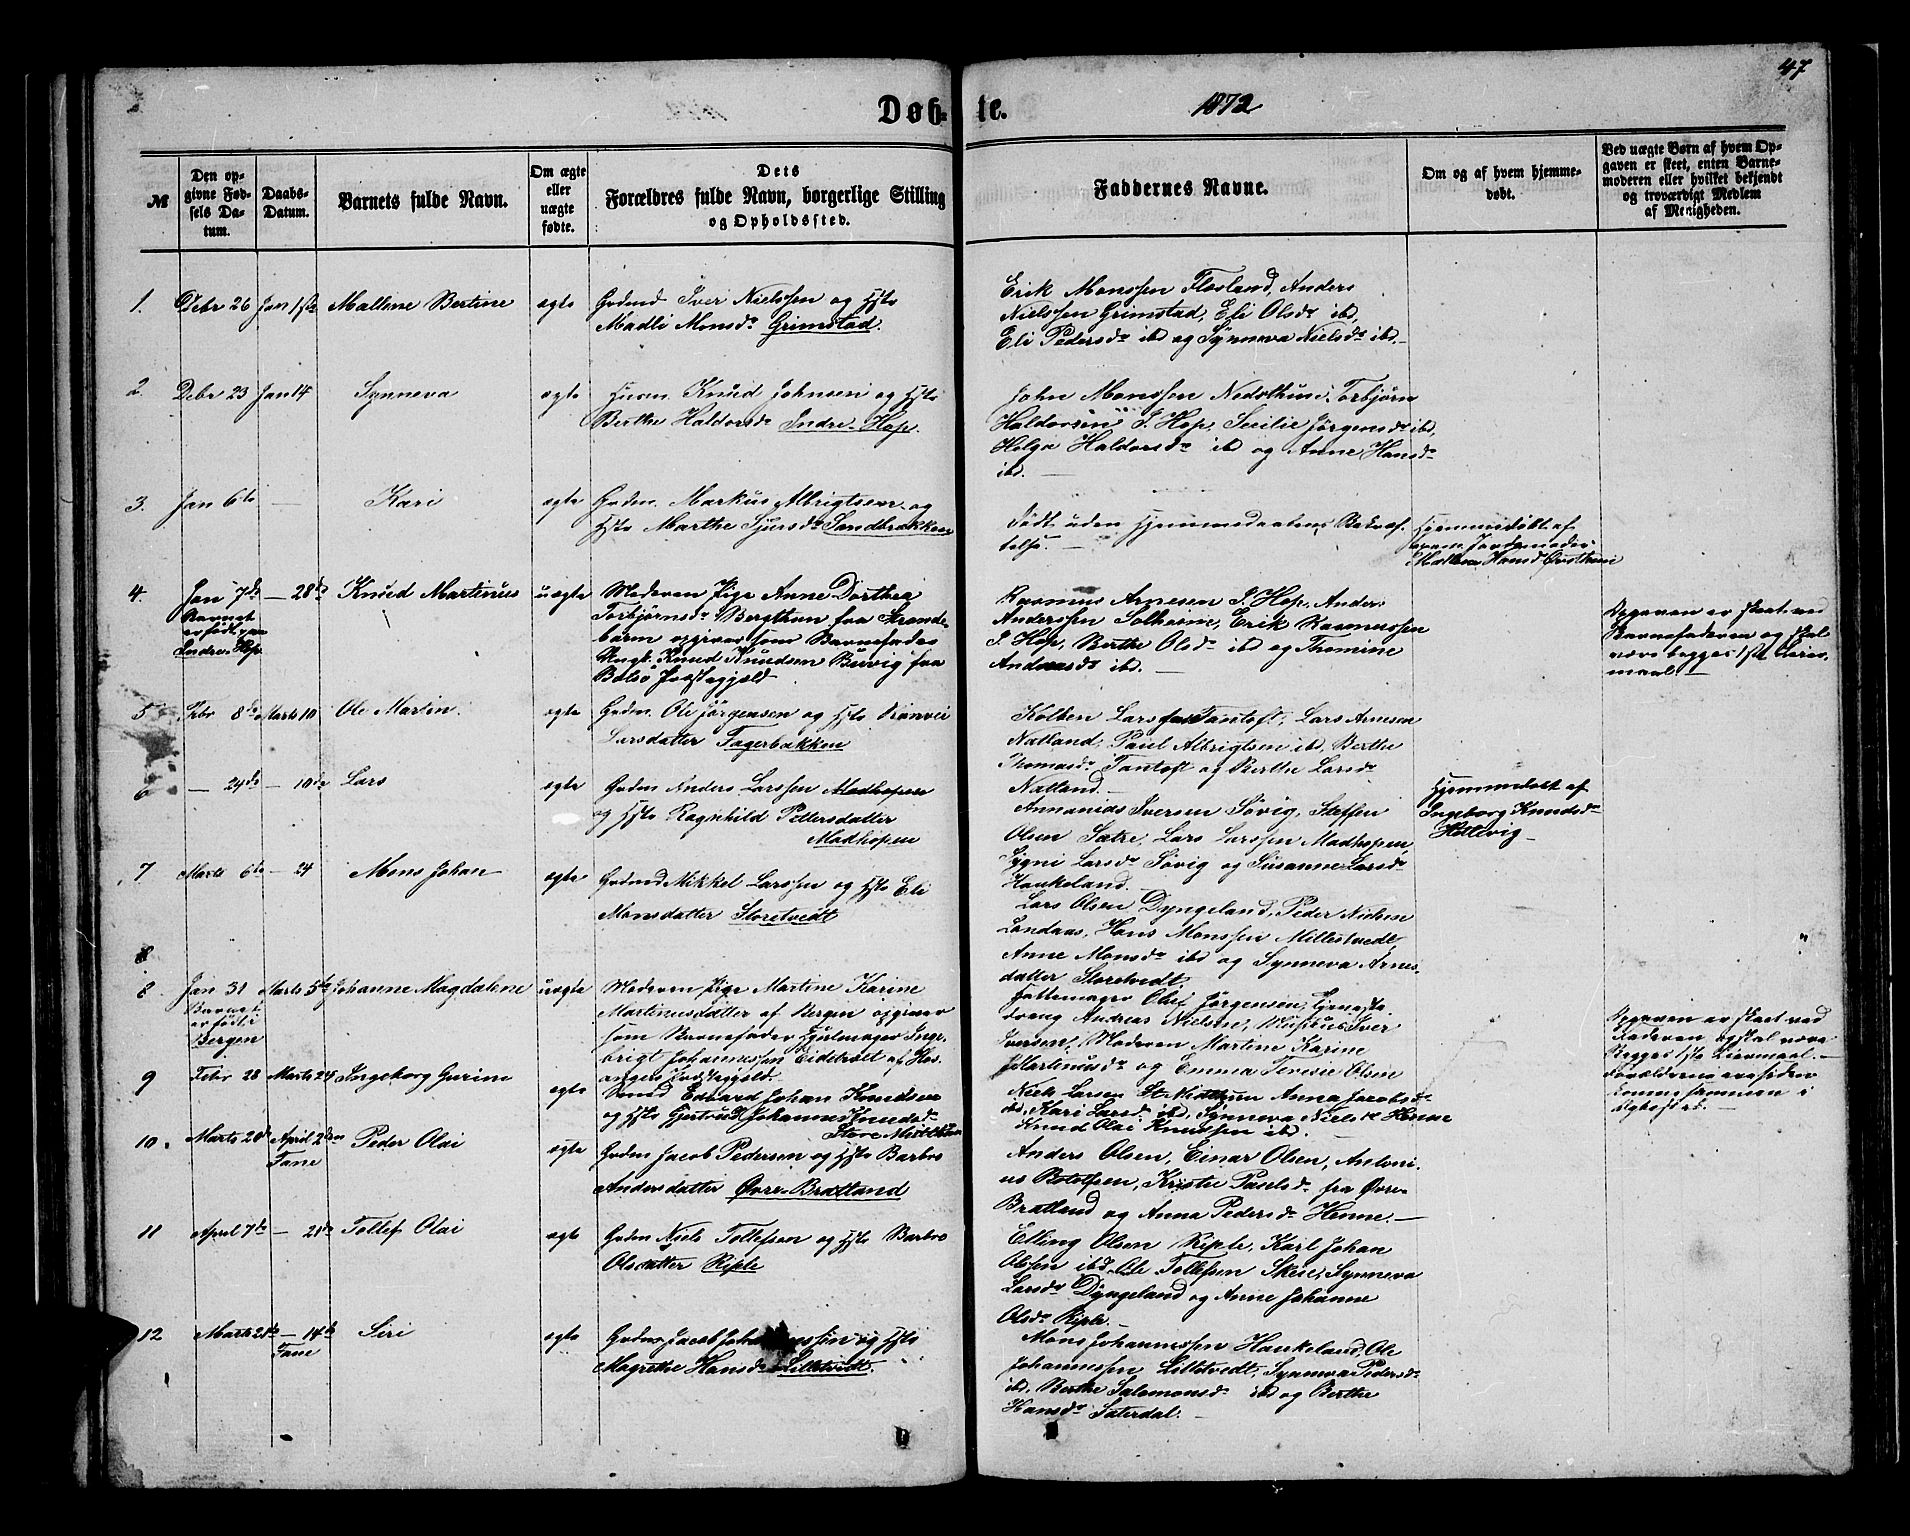 47
Døb-
te.
1872
№
Den op-
givne Fød-
sels Da-
tum.
Daabs-
Datum.
Barnets fulde Navn.
Om ægte
eller
uægte
fødte.
Dets
Forældres fulde Navn, borgerlige Stilling
og Opholdssted.
Faddernes Navne.
Om og af hvem hjemme-
døbt.
Ved uægte Børn af hvem Op-
gaven er skeet, enten Barne-
moderen eller hvilket bekjendt
og troværdigt Medlem
af Menigheden.
1. Debr 26 Jan 1ste Mallene Bertine ægte Grdmd Iver Nielssen og Hstr
Madli Monsdr Grimstad.
Erik Monssen Flosland, Anders
Nielssen Grimstad, Eli Olsdr ibd,
Eli Pedersdr ibd og Synneva Nielsdr ibd.
2. Debr 23 Jan 14 Synneva ægte Knud Johnsen og Hstr
Berthe Haldorsdr Indre-Hop.
John Monssen Nedsthuus, Torbjørn
Haldorsen I. Hop, Secilie Jørgensdr ibd,
Helga Haldorsdr ibd og Anne Hansdr
ibd.
3. Jan 6te — Kari ægte Grdm. Markus Albrigtsen og
Hstr Marthe Sjursdr Sandbrækken
Født uden Hjemmedaabens Bekræf-
telse.
Hjemmedøbt af
Jordemoder
Hansdr
4. Jan 7de — 28de Knud Martinus uægte Moderen Pige Anne Dorthea
Barnet
er født paa
Indre-Hop
Torbjørnsdr Bergthun fra Strande-
barm opgiver som Barnefader
Ungk. Knud Knudsen fra
Præstegjeld
Rasmus Arnesen I. Hop, Anders
Anderssen Solheim, Erik Rasmussen
I. Hop, Berthe Olsdr ibd og Thomine
Andersdr ibd.
Opgaven er skeet ved
Barnefaderen og skal
være begges 1ste Leier-
maal.
5 Febr 8de Marts 10 Ole Martin. ægte Grdm. Ole Jørgensen og Hstr Rønvei
Larsdatter Fagerbakken
Kolben Larssen Tantoft, Lars Arnesen
Natland, Paul Albrigtsen ibd, Berthe
Thomasdr Tantoft og Berthe Larsdr
Natland.
6 — 24de — 10de Lars ægte Grdm Anders Larssen Madhopen
og Hstr Ragnhild Pettersdatter
Madhopen
Annanias Iversen Søvig, Steffen
Olsen Sætre, Lars Larssen Madhopen,
Sygni Larsdr Søvig og Susanne Larsdr
Haukeland.
Hjemmedøbt af
Ingeborg Knudsdr
Holtvig
7 Marts 6te — 24 Mons Johan ægte Grdmd Mikkel Larssen og Hstr Eli
Monsdatter Storetvedt
Lars Olsen Dyngeland, Peder Nielsen
Landaas, Hans Monssen Millestvedt,
Anne Monsdr ibd og Synneva Arnes-
datter Storetvedt.
8
8. Jan 31 Marts 5te Johanne Magdalene uægte Moderen Pige Martine Karine
Barnet
er født i
Bergen
Martinusdatter af Bergen opgiver
som Barnefader Hjulmager Inge-
brigt Johannessen Eidetræet af Hos-
anger Præstegjeld.
Fattemager Olai Jørgensen, tjeneste-
dreng Andreas Nielsen, Iver
Iversen, Moderen Martine Karine
Martinusdr og Emma Teresie Olsen
Opgaven er skeet ved
Faderen og skal være
Begges 1ste Leiermaal.
Forældrene ere siden
komne sammen i
Ægteskab.
9 Febr 28 Marts 24 Ingeborg Gurine ægte Edvard Johan Knudsen
og Hstr Gjertrud Johanne Knudsdr
Store Midtthun
Niels Larsen St. Midtthun Anna Jacobsdr
ibd, Kari Larsdr ibd, Synneva Nielsdr Henne
Knud Olai Knudsen ibd.
10. Marts 20de April 2den Peder Olai ægte Grdm Jacob Pedersen og Hstr Barbro
Fane
Andersdatter Øvre-Bratland
Anders Olsen, Einar Olsen, Antoni-
us Rotolfsen, Kristie Paulsdr fra Øvre-
Bratland og Anna Pedersdr Henne.
11 April 7de — 21de Tollef Olai ægte Grdm Niels Tollefsen og Hstr Barbro
Olsdatter Riple
Elling Olsen Riple, Karl Johan
Olsen ibd, Ole Tollefsen Skeie, Synneva
Larsdr Dyngeland og Anne Johanne
Olsdr Riple.
12 Marts 21de — 14de Siri ægte Grdm Jacob Johannessen og Hstr
Fane
Magrethe Hansdr Lilletvedt.
Mons Johannessen Haukeland, Ole
Johannessen Lilletvedt, Synneva Pedersdr
ibd, Berthe Salomonsdr ibd og Berthe
Hansdr Sæterdal.